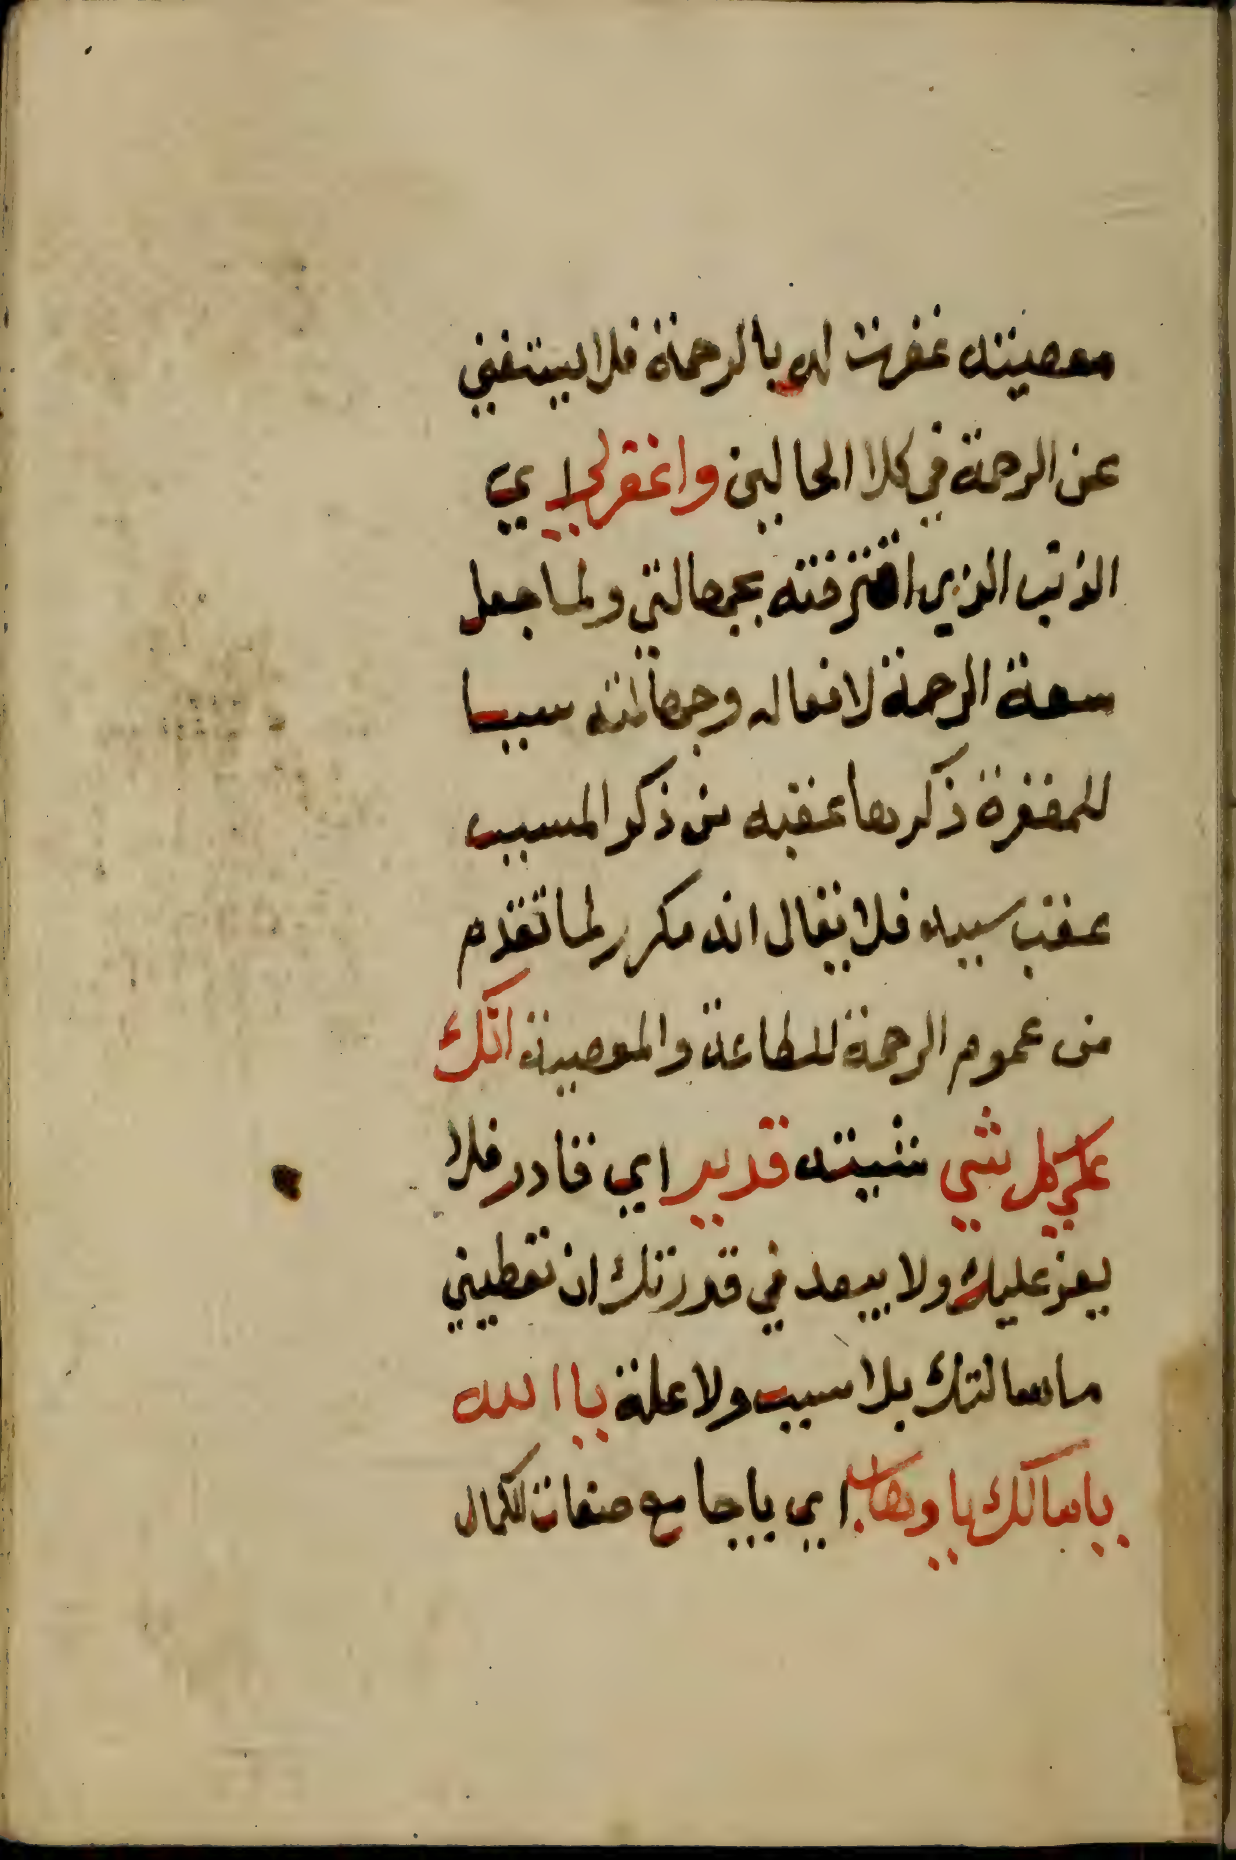 معصيته غفرت له بالرحمة فلا يستغني
عن الرحمة في كلا الحالين واغفر لي اي
الذنب الذي اقترفته بجهالتي ولما جعل
سعة الرحمة لافعاله وجهالته سببا
للمغفرة ذكرها عقبه من ذكر المسبب
عقب سببه فلا يقال انه مكرر لما تقدم
من عموم الرحمة للطاعة والمعصية انّك
على كل شي شيته قدير اي قادر فلا
يعز عليك ولا يبعد في قدرتك ان تعطيني
ما سالتك بلا سبب ولا علة يا الله
يا مالك يا وهاب اي يا جامع صفات الكمال